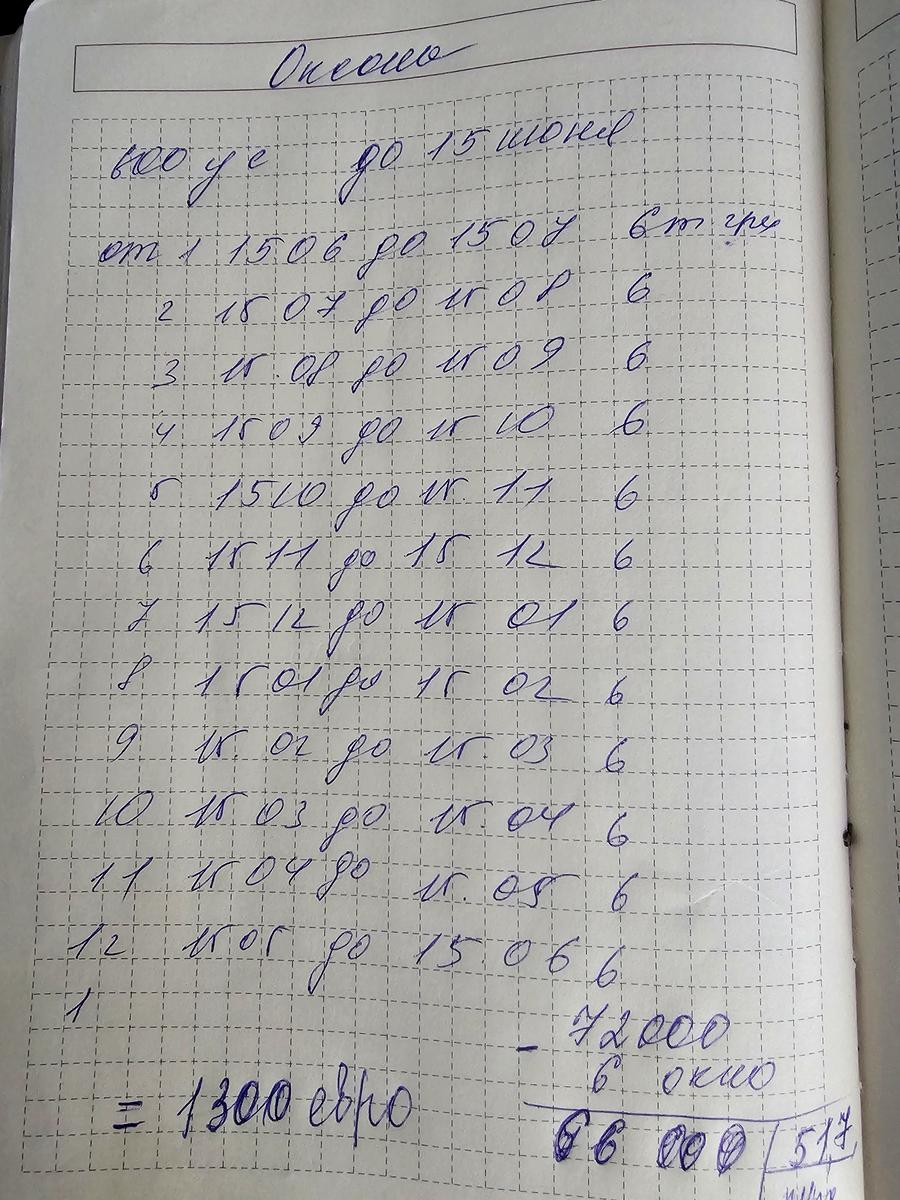 Оксана
600 у е до 15 июня
от 1 15 06 до 15 07 6 т грн
2 15 07 до 15 08 6
3 15. 08 до 15 09 6
4 15 09 до 15 10 6
5 15 10 до 15. 11 6
6 15 11 до 15 12 6
7 15 12 до 15 01 6
8 15 01 до 15 02 6
9 15. 02 до 15. 03 6
10 15 03 до 15. 04 6
11 15 04 до 15. 05 6
12 15 05 до 15. 06 6
1
- 72000
6 окно
= 1300 евро
66 000 | 51,7